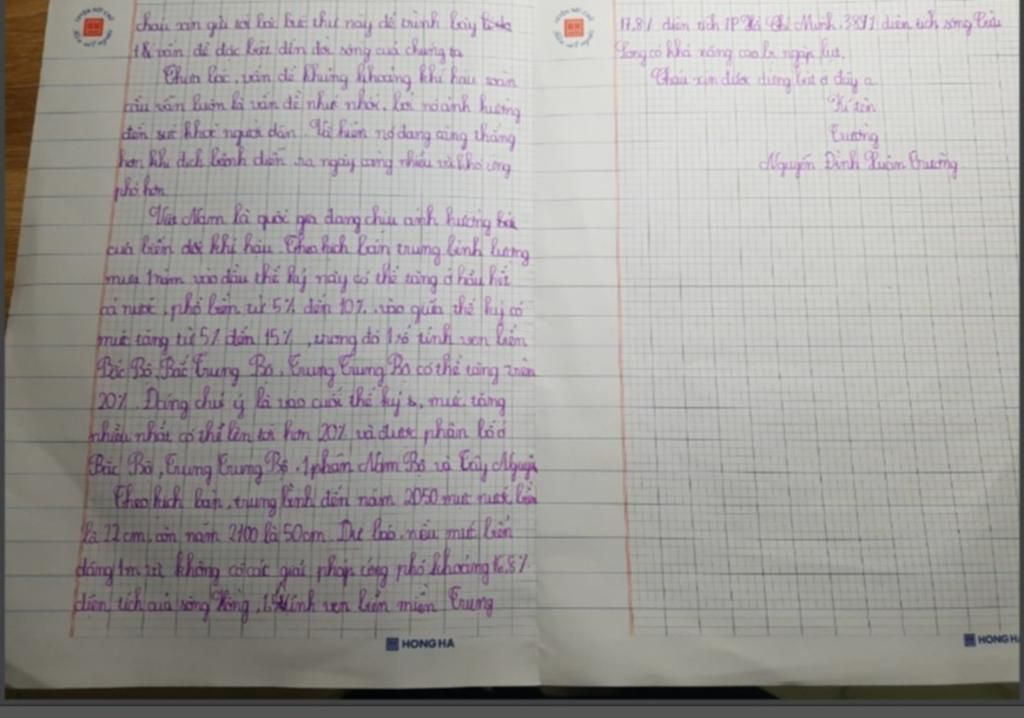 cháu xin gửi tới bác bức thư này để trình bày
1 & vấn đề đặc biệt đến đời sống của chúng ta
Thưa bác, vấn đề khủng khoảng khí hậu toàn
cầu vẫn luôn là vấn đề nhức nhói, bởi nó ảnh hưởng
đến sức khoẻ người dân. Và hiện nó đang căng thẳng
hơn khi dịch bệnh diễn ra ngày càng nhiều và khó ứng
phó hơn
Việt Nam là quốc gia đang chịu ảnh hưởng
của biến đổi khí hậu. Theo kịch bản trung bình lượng
mưa 1 năm vào đầu thế kỷ này có thể tăng ở hầu hết
cả nước, phổ biến từ 5% đến 10%, vào giữa thế kỷ có
mức tăng từ 5% đến 15%, trong đó 1 số tỉnh ven biển
Bắc Bộ, Bắc Trung Bộ, Trung Trung Bộ có thể tăng trên
20%. Đáng chú ý là vào cuối thế kỷ, mức tăng
nhiều nhất có thể lên tới hơn 20% và được phân bố ở
Bắc Bộ, Trung Trung Bộ, 1 phần Nam Bộ và Tây Nguyên
Theo kịch bản, trung bình đến năm 2050 mực nước biển
là 22cm, còn năm 2100 là 50cm. Dự báo, nếu mực biển
dâng 1m và không có các giải pháp ứng phó khoảng 16,8%
diện tích của sông Hồng, tỉnh ven biển miền Trung
HONG HA
17,8% diện tích TP Hồ Chí Minh, 38,9% diện tích sông Cửu
Long có khả năng cao bị ngập lụt.
Cháu xin được dừng bút ở đây ạ
Kí tên
Trường
Nguyễn Đình Xuân Trường
HONG HA